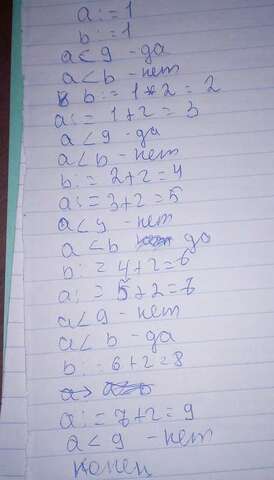 a:=1
b:=1
a<9 - да
a<b - нет
b:=1*2=2
a:=1+2=3
a<9 - да
a<b - нет
b:=2+2=4
a:=3+2=5
a<9 - нет
a<b да
b:=4+2=6
a:=5+2=7
a<9 - нет
a<b - да
b:=6+2=8
a:=7+2=9
a<9 - нет
конец